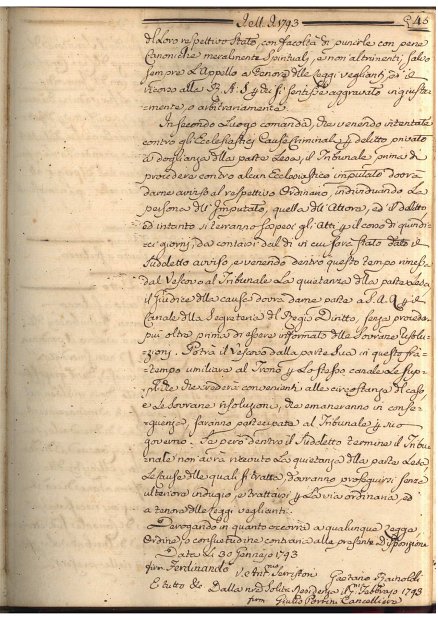 Dell' A. 1793 45
di Loro respettivo Stato, con facoltà di punirle con pene
Canoniche meramente Spirituali, e non altrimenti, salvo
sempre l'Appello a tenore delle Leggi veglianti, ed il
ricorso alla R. A. S. p chi si sentisse aggravato ingiusta=
mente, o arbitrariamente.
In secondo Luogo comanda, che venendo intentate
contro gli Ecclesiastici Cause Criminali p delitto privato
a doglianza della parte Lesa, il Tribunale prima di
procedere contro alcun Ecclesiastico imputato dovrà
darne avviso al respettivo Ordinario, individuando La
persona dell' Imputato, quella dell' Attore, ed il delitto
ed intanto si terranno sospesi gli Atti p il corso di quindi=
ci giorni, da contarsi dal dì in cui sarà stato dato il
suddetto avviso, e venendo dentro questo tempo rimessa
dal Vescovo al Tribunale La quietanza della parte Lesa
il Giudice della causa dovrà darne parte a S. A. R. p il
Canale della Segreteria del Regio Diritto, senza proceder
più oltre prima di essere informato delle Sovrane risolu=
zioni. Potrà il Vescovo dalla parte Sua in questo fra=
tempo umiliare al Trono p Lo stesso canale Le sup=
pliche che crederà convenienti alle circostanze di caso,
e Le Sovrane risoluzioni, che emaneranno in conse=
guenza, saranno partecipate al Tribunale p suo
governo. Se però dentro il suddetto termine il Tribu=
nale non avrà ricevuto La quietanza della parte Lesa
Le cause delle quali si tratta, dovranno proseguirsi senza
ulteriore indugio, e trattarsi p La via ordinaria, ed
a tenore delle Leggi veglianti.
Derogando in quanto occorra a qualunque Legge
Ordine, o consuetudine contraria alla presente disposizione
Data Li 30 Gennajo 1793
firm. Ferdinando
V. Ant. Serristori
Gaetano Rainoldi
E tutto ciò Dalla nra Solita Residenza Li Febbrajo 1793
firm. Giulio Perrini Cancelliere